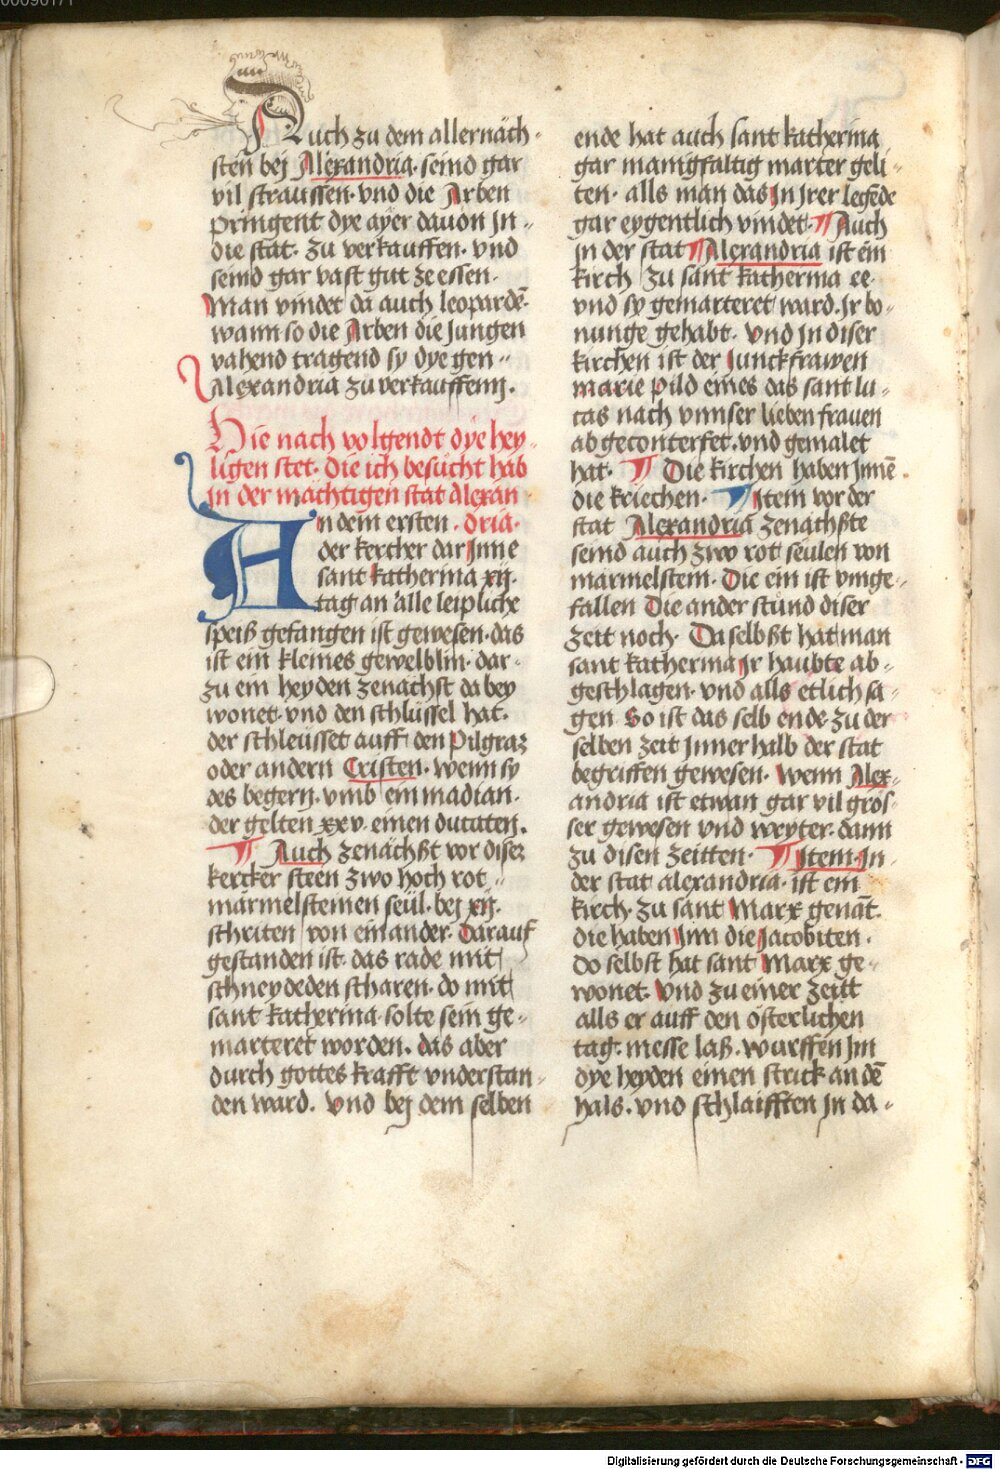 00090171
Auch zu dem allernäch-
sten bej Alexandria. seind gar
vil straussen. vnd die Arben
pringent dye ayer dauon Jn-
die stat. zu verkauffen. vnd
seind gar vast gut ze essen.
Man vindet da auch leopardē.
wann so die Arben die Jungen
vahend tragend sy dye gen-
Alexandria zu verkauffenn.
Hie nach volgendt dye hey-
ligen stet. die ich besucht hab
in der mächtigen stat Alexan
An dem ersten. dria.
der kercher dar Jnne
sant katherina xij.
tag an alle leipliche
speiß gefangen ist gewesen. das
ist ein kleines gewelblin. dar-
zu ein heyden zenächst da bey
wonet. vnd den schlüssel hat.
der schleusset auff den pilgraz
oder andern Cristen. wenn sy
des begern. vmb ein madian.
der gelten xxv. einen ducaten.
¶ Auch zenächst vor diser
kercker steen zwo hoch rot-
marmelsteinen seül. bej xij.
schriten von einander. Darauf
gestanden ist. das rade mit
schneydeden scharen. do mit
sant katherina. solte sein ge-
marteret worden. das aber
durch gottes krafft vnderstan-
den ward. vnd bej dem selben
ende hat auch sant katherina
gar manigfaltig marter geli-
ten. alls man das Jn Jrer legēde
gar eygentlich vindet. ¶ Auch
Jn der stat ¶ Alexandria ist ein
kirch zu sant katherina ee.
vnd sy gemarteret ward. Jr bo-
nunge gehabt. vnd Jn diser
kirchen ist der Junckfrawen
marie pild eines das sant lu-
cas nach vnnser lieben frauen
ab geconterfet. vnd gemalet
hat. ¶ Die kirchen haben Jnnē.
die kriechen. ¶ Jtem vor der
stat Alexandria zenächste
seind auch zwo rot seulen von
marmelstein. Die ein ist vmge-
fallen Die ander stund diser
zeit noch. Daselbst hat man
sant katherina Jr haubte ab-
geschlagen. vnd alls etlich sa-
gen So ist das selb ende zu der
selben zeit Jnnerhalb der stat
begriffen gewesen. wenn Alex-
andria ist etwan gar vil grös-
ser gewesen vnd weyter. dann
zu disen zeitten. ¶ Jtem. Jn-
der stat alexandria. ist ein
kirch. zu sant Marx genāt.
die haben Jnn die Jacobiten.
Do selbst hat sant Marx ge-
wonet. Vnd zu einer zeitt
alls er auff den österlichen
tag. messe laß. wurffen Jm
dye heyden einen strick an dē
hals. vnd schlaifften Jn da-
Digitalisierung gefördert durch die Deutsche Forschungsgemeinschaft - DFG